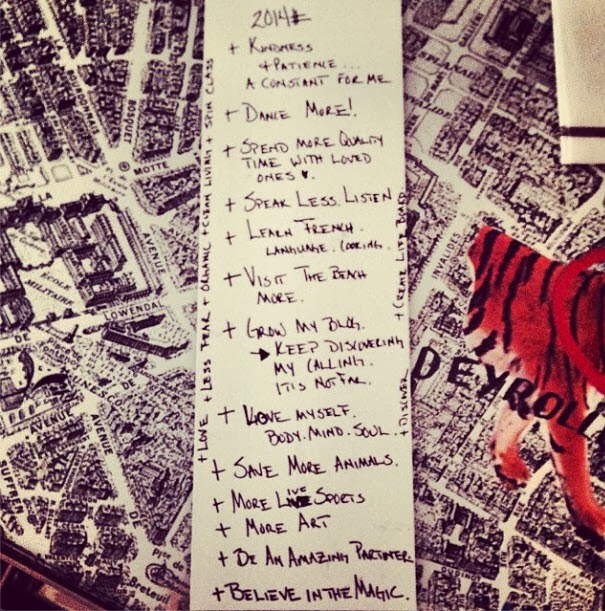 2014
+ KINDNESS
+ PATIENCE...
A CONSTANT FOR ME
+ DANCE MORE!
+ SPEND MORE QUALITY
TIME WITH LOVED
ONES
+ SPEAK LESS. LISTEN
+ LEARN FRENCH.
LANGUAGE. COOKING.
+ VISIT THE BEACH
MORE.
+ GROW MY BLOG.
KEEP DISCOVERING
MY CALLING.
IT IS NOT FAR.
+ LOVE MYSELF.
BODY. MIND. SOUL.
+ SAVE MORE ANIMALS.
+ MORE LIVE SPORTS
+ MORE ART
+ BE AN AMAZING PARTNER
+ BELIEVE IN THE MAGIC.
+ LOVE + LESS FEAR + ORGANIC + CLEAN LIVING + SPIN CLASS
+ DISCOVER + CREATE LIFE BOARD
DEYROLL
MOTTE
BOSQUET
AVENUE
ECOLE
MILITAIRE
LOWENDAL
DE
AVENUE
Breteuil